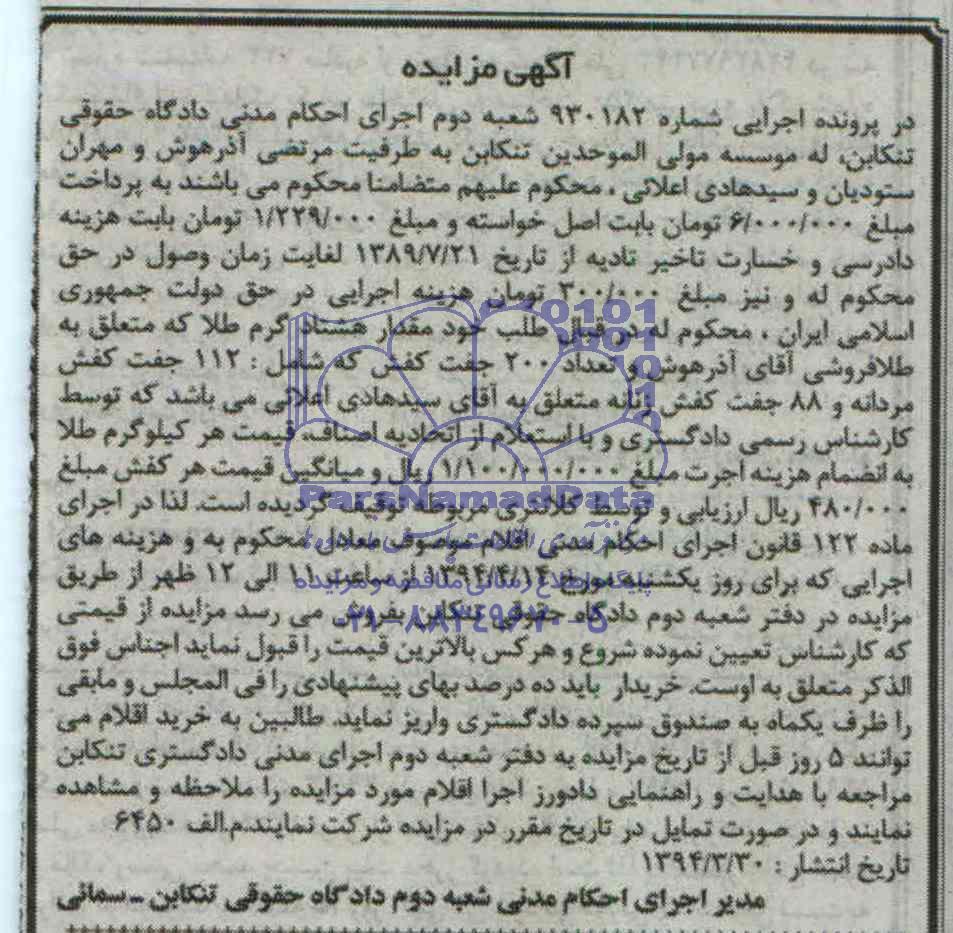 آگهی مزایده
در پرونده اجرایی شماره ۹۳۰۱۸۲ شعبه دوم اجرای احکام مدنی دادگاه حقوقی
تنکابن، له موسسه مولی الموحدین تنکابن به طرفیت مرتضی آذرهوش و مهران
ستودیان و سیدهادی اعلائی ، محکوم علیهم متضامنا محکوم می باشند به پرداخت
مبلغ ۶/۰۰۰/۰۰۰ تومان بابت اصل خواسته و مبلغ ۱/۲۲۹/۰۰۰ تومان بابت هزینه
دادرسی و خسارت تاخیر تادیه از تاریخ ۱۳۸۹/۷/۲۱ لغایت زمان وصول در حق
محکوم له و نیز مبلغ ۳۰۰/۰۰۰ تومان هزینه اجرایی در حق دولت جمهوری
اسلامی ایران ، محکوم له در قبال طلب خود مقدار هشتاد گرم طلا که متعلق به
طلافروشی آقای آذرهوش و تعداد ۲۰۰ جفت کفش که شامل : ۱۱۲ جفت کفش
مردانه و ۸۸ جفت کفش زنانه متعلق به آقای سیدهادی اعلائی می باشد که توسط
کارشناس رسمی دادگستری و با استعلام از اتحادیه اصناف، قیمت هر کیلوگرم طلا
به انضمام هزینه اجرت مبلغ ۱/۱۰۰/۰۰۰/۰۰۰ ریال و میانگین قیمت هر کفش مبلغ
۴۸۰/۰۰۰ ریال ارزیابی و توسط کلانتری مربوطه توقیف گردیده است. لذا در اجرای
ماده ۱۲۲ قانون اجرای احکام مدنی اقلام موصوف معادل محکوم به و هزینه های
اجرایی که برای روز یکشنبه مورخ ۱۳۹۴/۴/۱۴ از ساعت ۱۱ الی ۱۲ ظهر از طریق
مزایده در دفتر شعبه دوم دادگاه حقوقی تنکابن بفروش می رسد مزایده از قیمتی
که کارشناس تعیین نموده شروع و هر کس بالاترین قیمت را قبول نماید اجناس فوق
الذکر متعلق به اوست. خریدار باید ده درصد بهای پیشنهادی را فی المجلس و مابقی
را ظرف یکماه به صندوق سپرده دادگستری واریز نماید. طالبین به خرید اقلام می
توانند ۵ روز قبل از تاریخ مزایده به دفتر شعبه دوم اجرای مدنی دادگستری تنکابن
مراجعه با هدایت و راهنمایی دادورز اجرا اقلام مورد مزایده را ملاحظه و مشاهده
نمایند و در صورت تمایل در تاریخ مقرر در مزایده شرکت نمایند.م.الف ۶۴۵۰
تاریخ انتشار : ۱۳۹۴/۳/۳۰
مدیر اجرای احکام مدنی شعبه دوم دادگاه حقوقی تنکابن ـ سمائی
ParsNamadData
پایگاه اطلاع رسانی مناقصه و مزایده
۰۲۱-۸۸۳٤۹۶۷۰-۵